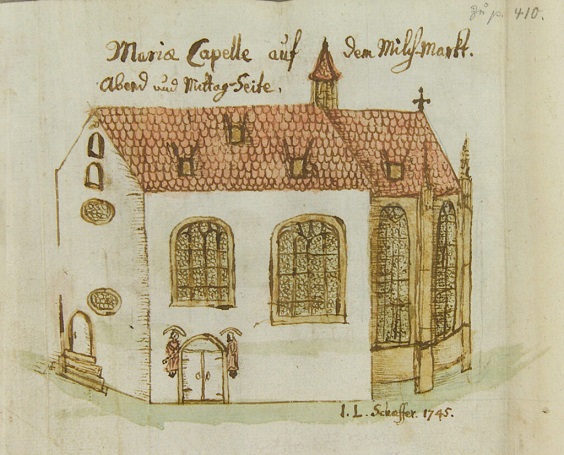 zu p. 410.
Mariæ Capelle auf dem Milch-Markt.
Abend und Mittag-Seite.
I. L. Schæffer. 1745.